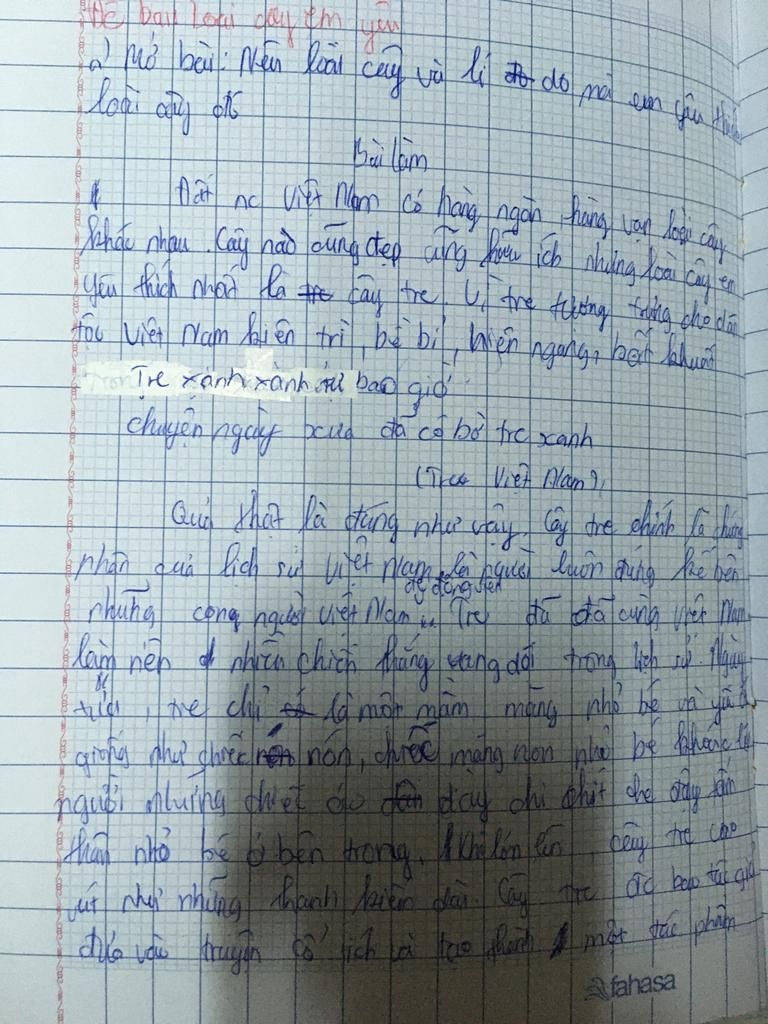 Đề bài: Loài cây em yêu
a) Mở bài: Nêu loài cây và lí do mà em yêu thích
loài cây đó
Bài làm
Đất nc Việt Nam có hàng ngàn, hàng vạn loài cây
khác nhau. Cây nào cũng đẹp cũng hữu ích nhưng loài cây em
yêu thích nhất là cây tre. Vì tre tượng trưng cho dân
tộc Việt Nam kiên trì, bề bỉ, hiên ngang, bất khuất
Tre xanh xanh tự bao giờ
chuyện ngày xưa đã có bờ tre xanh
(Tre Việt Nam)
Quả thật là đúng như vậy. Cây tre chính là chứng
nhận quả lịch sử Việt Nam, là người luôn đứng kề bên
những công người Việt Nam... Tre đã đã cùng Việt Nam
làm nên nhiều chiến thắng vang dội trong lịch sử. Ngày
, tre chỉ là một mầm măng nhỏ bé và
giống như chiếc nón, chiếc măng non nhỏ bé khoác lên
người những chiếc áo dày chi chít che đậy tấm
thân nhỏ bé ở bên trong. Khi lớn lên, cây tre cao
vút như những thanh kiếm dài. Cây tre đc bao tác giả
đưa vào truyện cổ tích và tạo thành một tác phẩm
fahasa